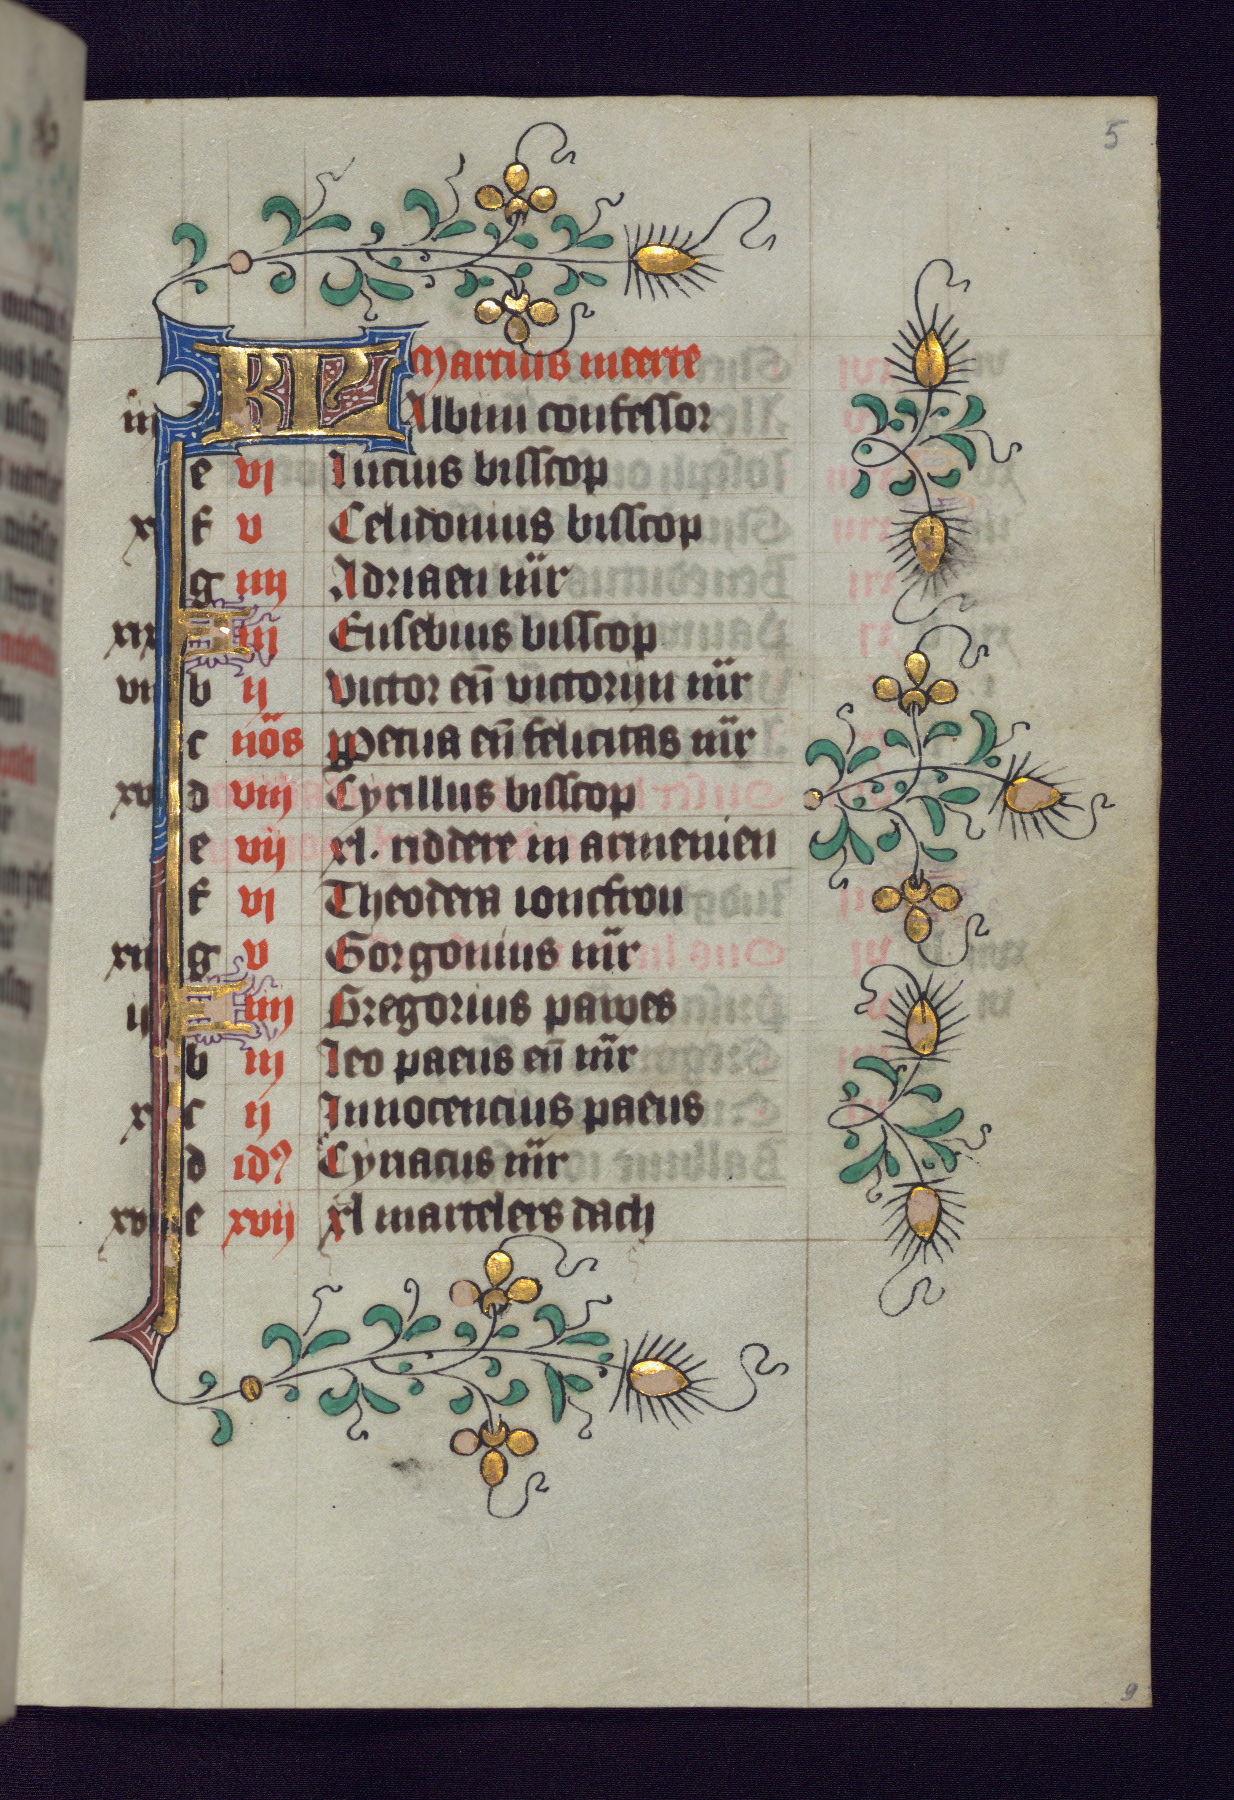 5
KL Martius meerte
iii Albini confessor
e vi Lucius bisscop
xi f v Celidonius bisscop
g iiij Adriaen mr̄
xix A iij Eusebius bisscop
viii b ij Victor eñ victorijn mr̄
c nōs Petua eñ felicitas mr̄
xvi d viij Cyrillus bisscop
e vij xl. riddere in armenien
f vi Theodera ioncfrou
xiii g v Gorgonius mr̄
ij A iiij Gregorius pawes
b iij Leo paeus eñ mr̄
x c ij Innocencius paeus
d id9 Cyriacus mr̄
xviii e xvij xl martelers dach
9